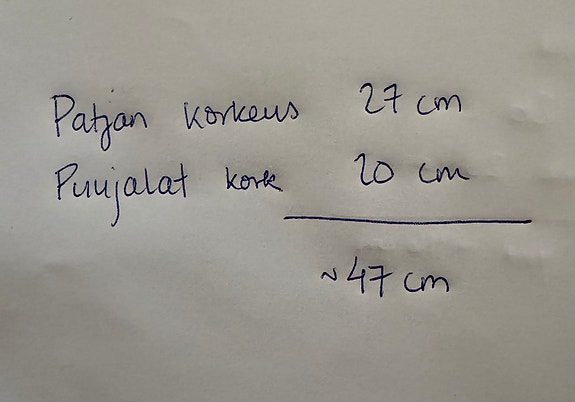 Patjan korkeus 27 cm
Puujalat kork 20 cm
~47 cm